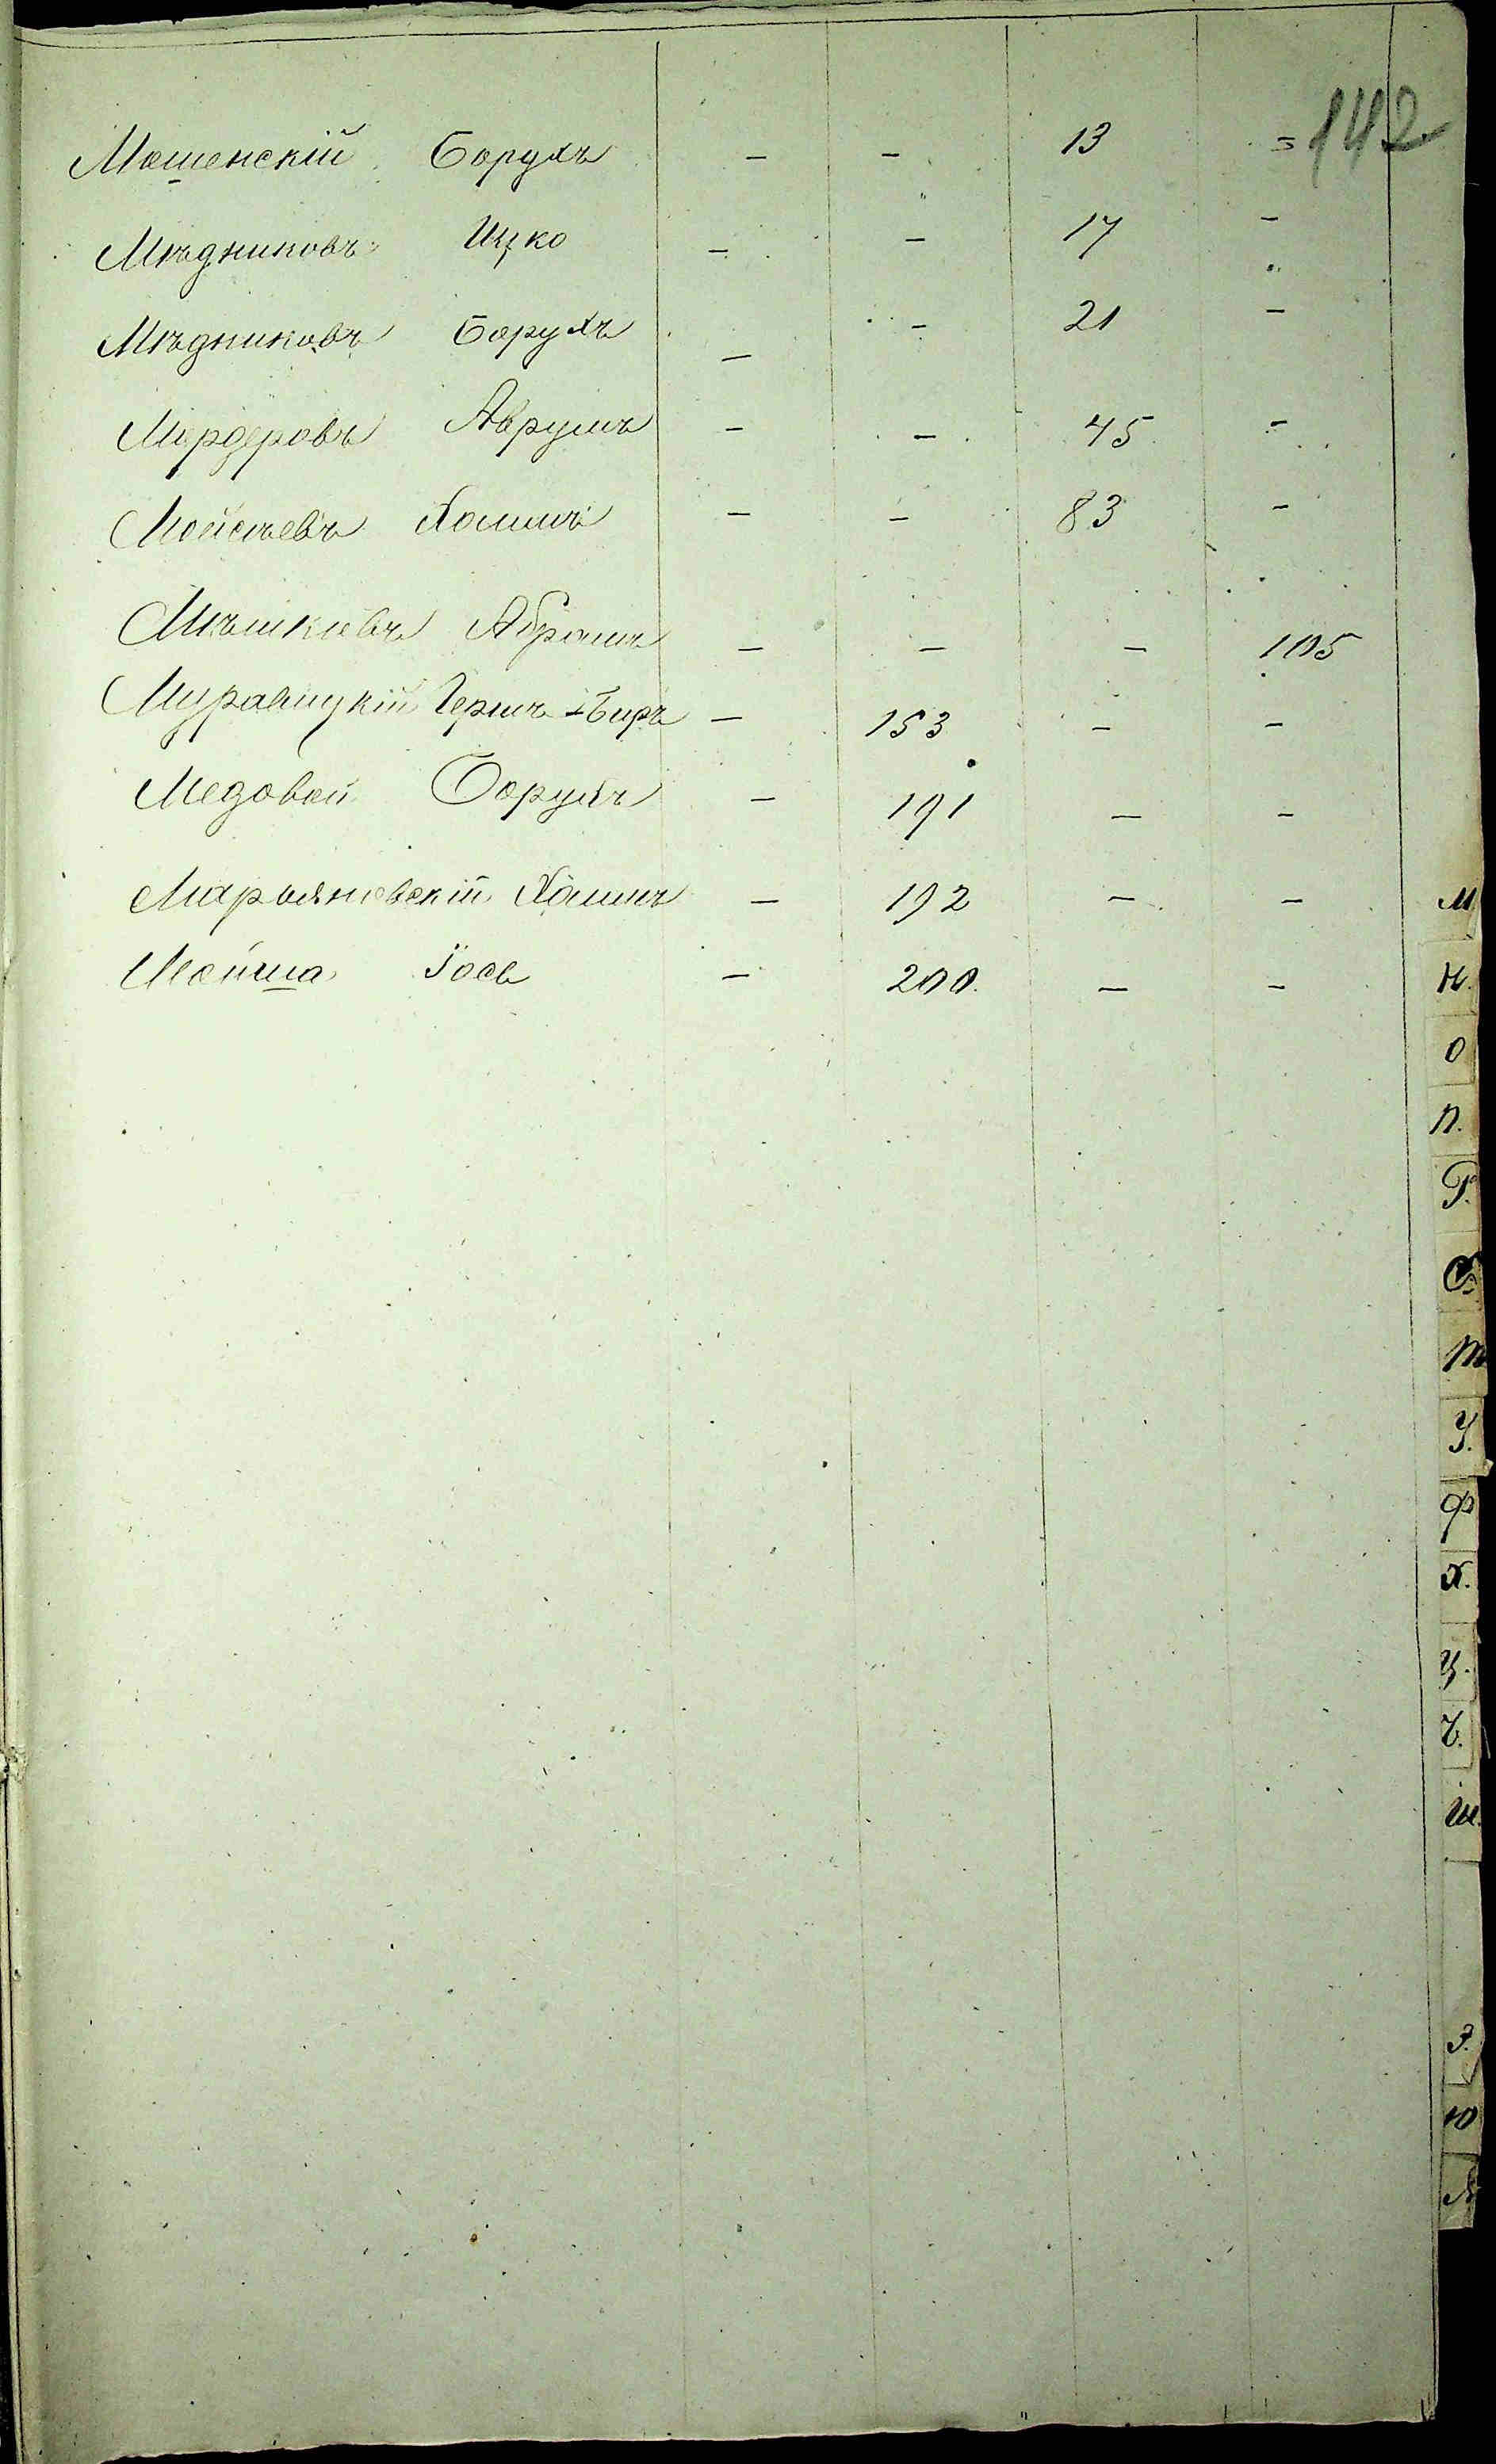 142
Мошенскій Борухъ — — 13 =
Мѣдниковъ Ицко — — 17 —
Мѣдниковъ Борухъ — — 21 —
Мердеровъ Аврумъ — — 45 —
Мойсѣевъ Хаимъ — — 83 —
Абрамъ — — — 105
Муравицкій Герш Беръ — 153 — —
Медовой Борухъ — 191 — —
Марьяновскій Хаимъ — 192 — —
Мойша Іось — 200. — —
М
Н.
О
П.
Р.
С.
Т
У.
Ф
Х.
Ц.
Ч.
Ш.
Э.
Ю
Я